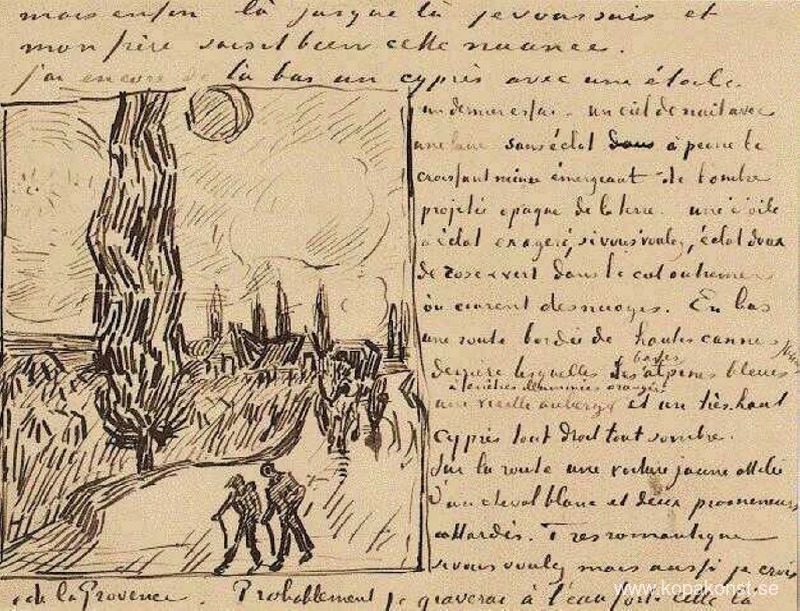 mais enfin là jusque là je vous suis et
mon frère saisit bien cette nuance.
j'ai encore de là bas un cyprès avec une étoile
un dernier essai – un ciel de nuit avec
une lune sans éclat dans à peine le
croissant mince émergeant de l'ombre
projetée opaque de la terre. une étoile
à éclat exageré, si vous voulez, éclat doux
de rose & vert dans le ciel outremer
où courent des nuages. En bas
une route bordée de hautes cannes
derrière lesquelles les basses alpines bleues
une vieille auberge à fenêtres illuminées orangée et un très haut
cyprès tout droit tout sombre.
Sur la route une voiture jaune attelée
d'un cheval blanc et deux promeneurs
attardés. Très romantique
si vous voulez mais aussi je crois
de la Provence Probablement je graverai à l'eau forte celle là
www.kopakonst.se